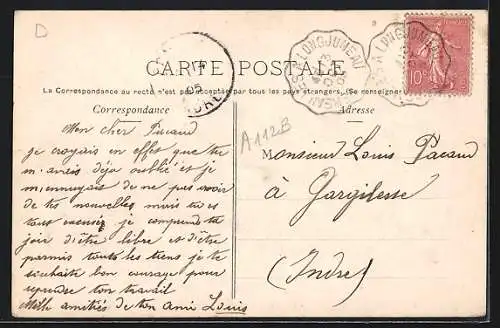 D
A LONGJUMEAU
A LONGJUMEAU
10
CARTE POSTALE
La Correspondance au recto n'est pas acceptée par tous les pays étrangers. (Se renseigner
Correspondance
Adresse
A112B
Mon cher Pacaud
je croyais en effet que tu
m'avais déja oublié et je
m'ennuyais de ne pas avoir
de tes nouvelles mais tu es
tout excusé je comprends ta
joie d'être libre et d'être
parmis tous les tiens je te
souhaite bon courage pour
reprendre ton travail
Mille amitiés de ton ami Louis
Monsieur Louis Pacaud
à Gargilesse
(Indre)